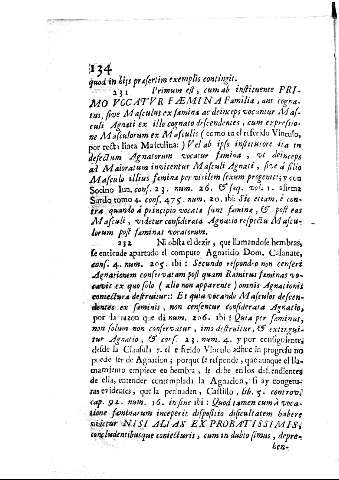 134
quod in hijs præsertim exemplis contingit.
231 Primum est, cum ab instituente PRI-
MO VOCATVR FÆMINA Familiæ, aut cogna-
tus, sivè Masculus ex fæmina ac deinceps vocantur Mas-
culi Agnati ex illo cognato descendentes, cum expressio-
ne Masculorum ex Masculis ( como en el referido Vinculo,
por recta linea Masculina: ) Vel ab ipso institutore ita in
defectum Agnatorum vocatur fæmina, vt deinceps
ad Maioratum invitentur Masculi Agnati, sivè à filio
Masculo illius fæmina per virilem sexum progeniti; y con
Socino Iun. cons. 23. num. 26. & seq. vol. 1. afirma
Surdo tomo 4. cons. 475. num. 20. ibi: Sic etiam, è con-
tra quando à principio vocata sunt fæmina, & post eas
Masculi, videtur considerata Agnatio respectu Mascu-
lorum post fæminas vocatorum.
232 Ni obsta el dezir, que llamandose hembras,
se entiende apartado el computo Agnaticio Dom. Calanate,
cons. 4. num. 205. ibi: Secundo respondeo non censeri
Agnationem conservatam postquam Ramirus fæminas vo-
cavit ex quo solo ( alio non apparente ) omnis Agnationis
coniectura destruitur: Et quia vocando Masculos descen-
dentes ex fæminis, non censentur considerata Agnatio,
por la razon que da num. 206. ibi: Quia per fæminas,
non solum non conservatur, imo destruitur, & extingui-
tur Agnatio, & cons. 23. num. 4. y por consiguiente,
desde la Clausula 7. el referido Vinculo aduce in progressu no
puede ser de Agnacion; porque se responde, que aunque el lla-
mamiento empiece en hembra, se debe en los descendientes
de ella, entender contemplada la Agnacion, si ay congetu-
ras evidentes, que la persuaden, Castillo, lib. 5. controv.
cap. 92. num. 16. in fine ibi: Quod tamen cum à voca-
tione fæminarum inceperit dispositio dificultatem habere
videtur NISI ALIAS EX PROBATISSIMIS,
concludentibusque coniecturis, cum in dubio simus, depre-
hen-